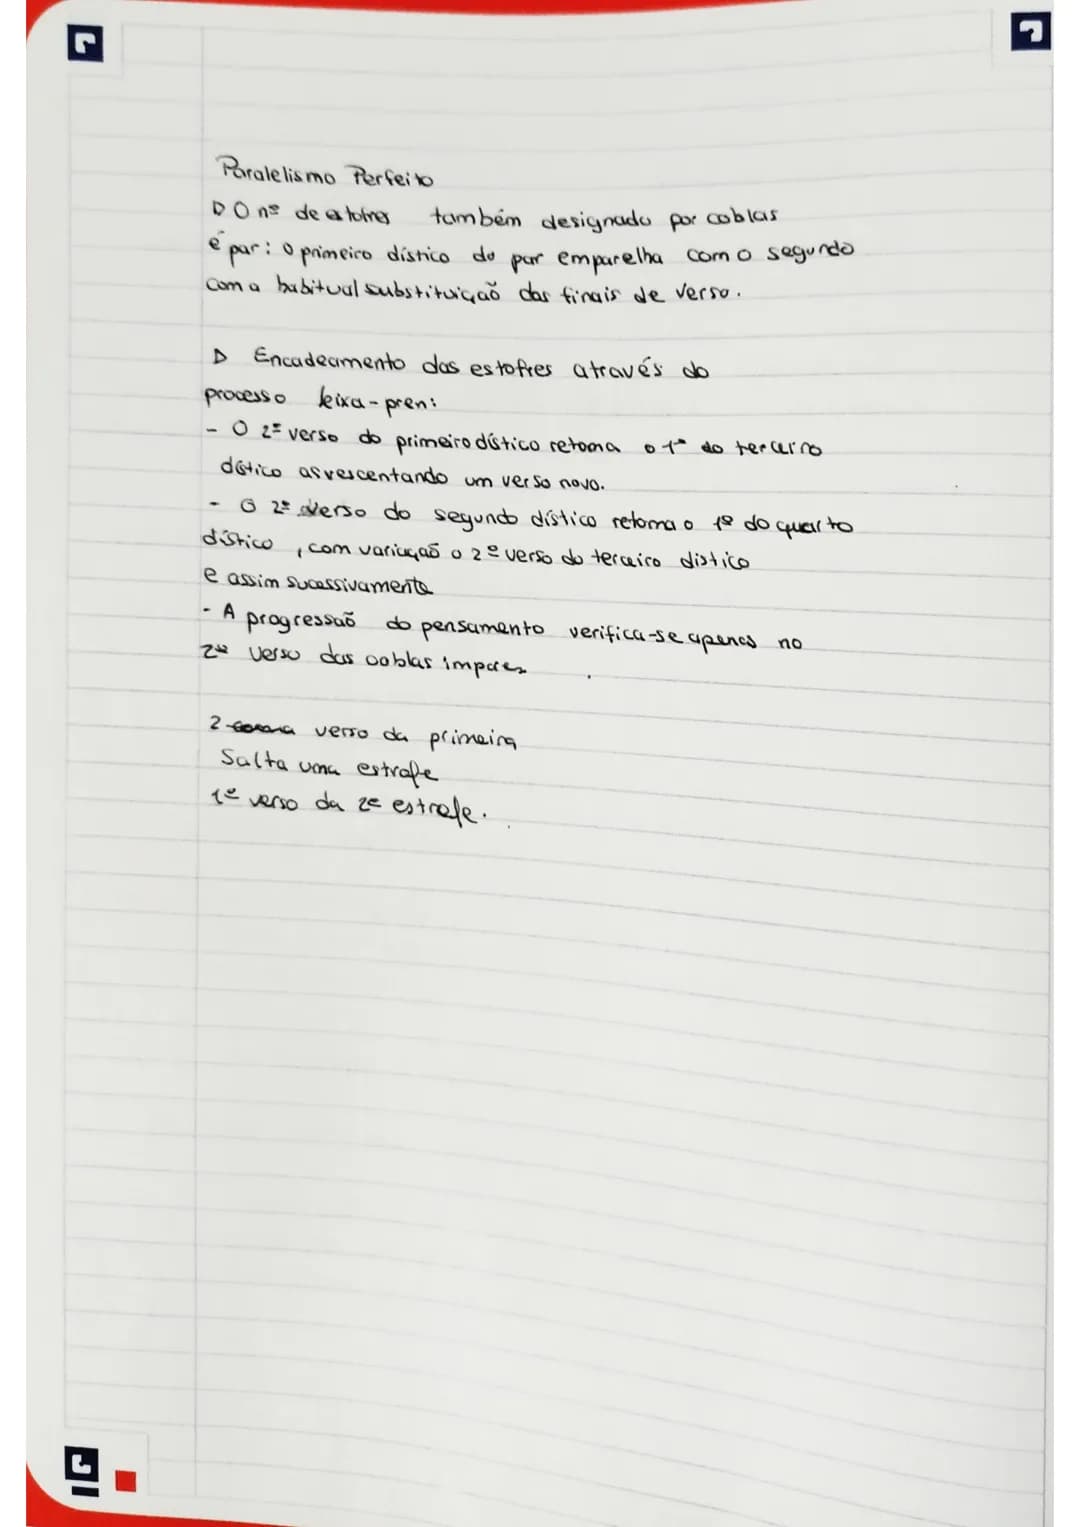 Paralelismo Perfeito
D O nº de estofres também designado por coblas
é par: o primeiro dístico do par emparelha com o segundo
com a habitual substituição das finais de verso.
D Encadeamento das estofres através do
processo leixa-pren:
- O 2º verso do primeiro dístico retoma o 1º do terceiro
dístico asrescentando um verso novo.
- O 2º verso do segundo dístico retoma o 1º do quarto
dístico, com variação o 2º verso do terceiro distico
e assim sucessivamente
- A progressaõ do pensamento verifica-se apenas no
2º verso das coblas impares
2 verso da primeira
Salta uma estrofe
1º verso da 2ª estrofe.